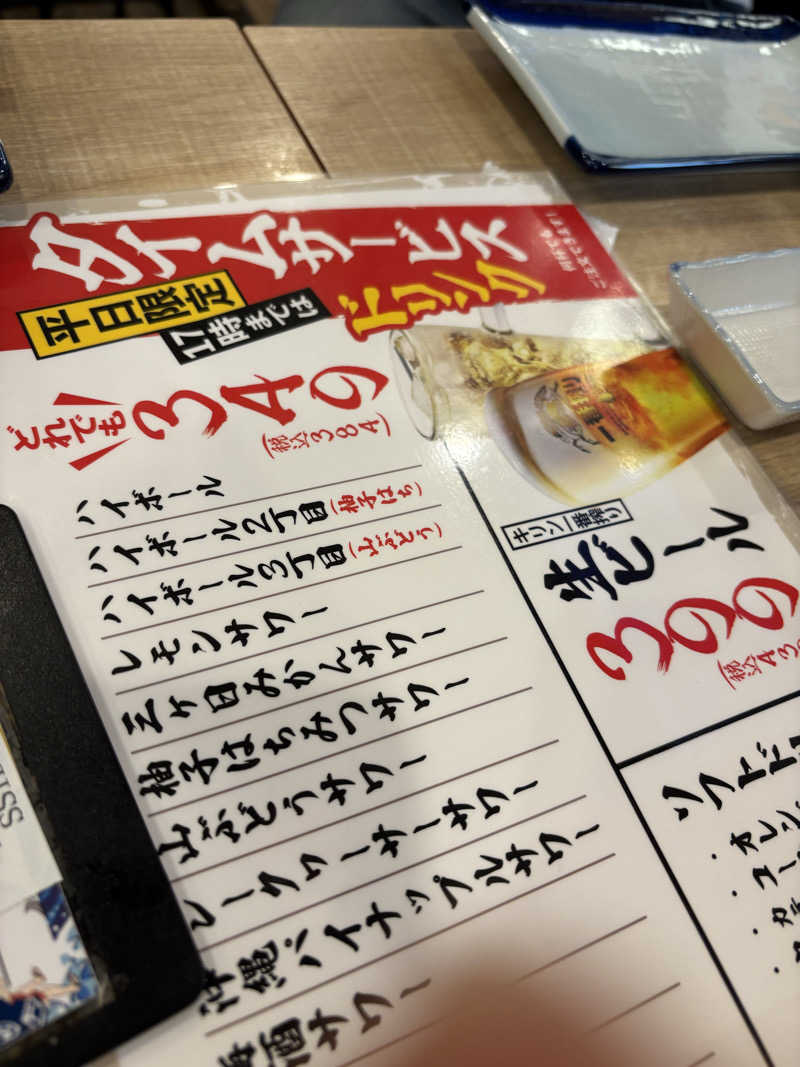 タイムサービス
何杯でも
ご注文できます!
平日限定
17時までは
ドリンク
どれでも
349
(税込384)
ハイボール
ハイボール2丁目(柚子はち)
ハイボール3丁目(山ぶどう)
レモンサワー
三ヶ日みかんサワー
柚子はちみつサワー
山ぶどうサワー
シークヮーサーサワー
沖縄パイナップルサワー
梅酒サワー
一番搾り
キリン一番搾り
生ビール
399
(税込43
ソフトド
・オレン
・コー
・カ